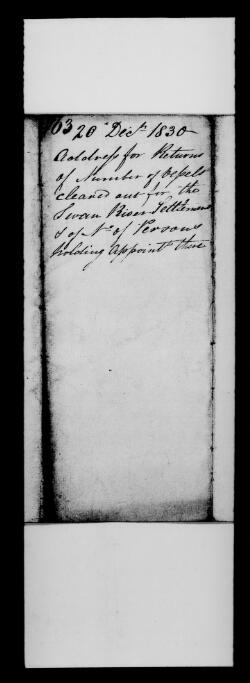 63 20 Decr. 1830
Address for Returns
of Number of Vessels
cleared out for the
Swan River Settlement
& of No. of Persons
holding Appoint there